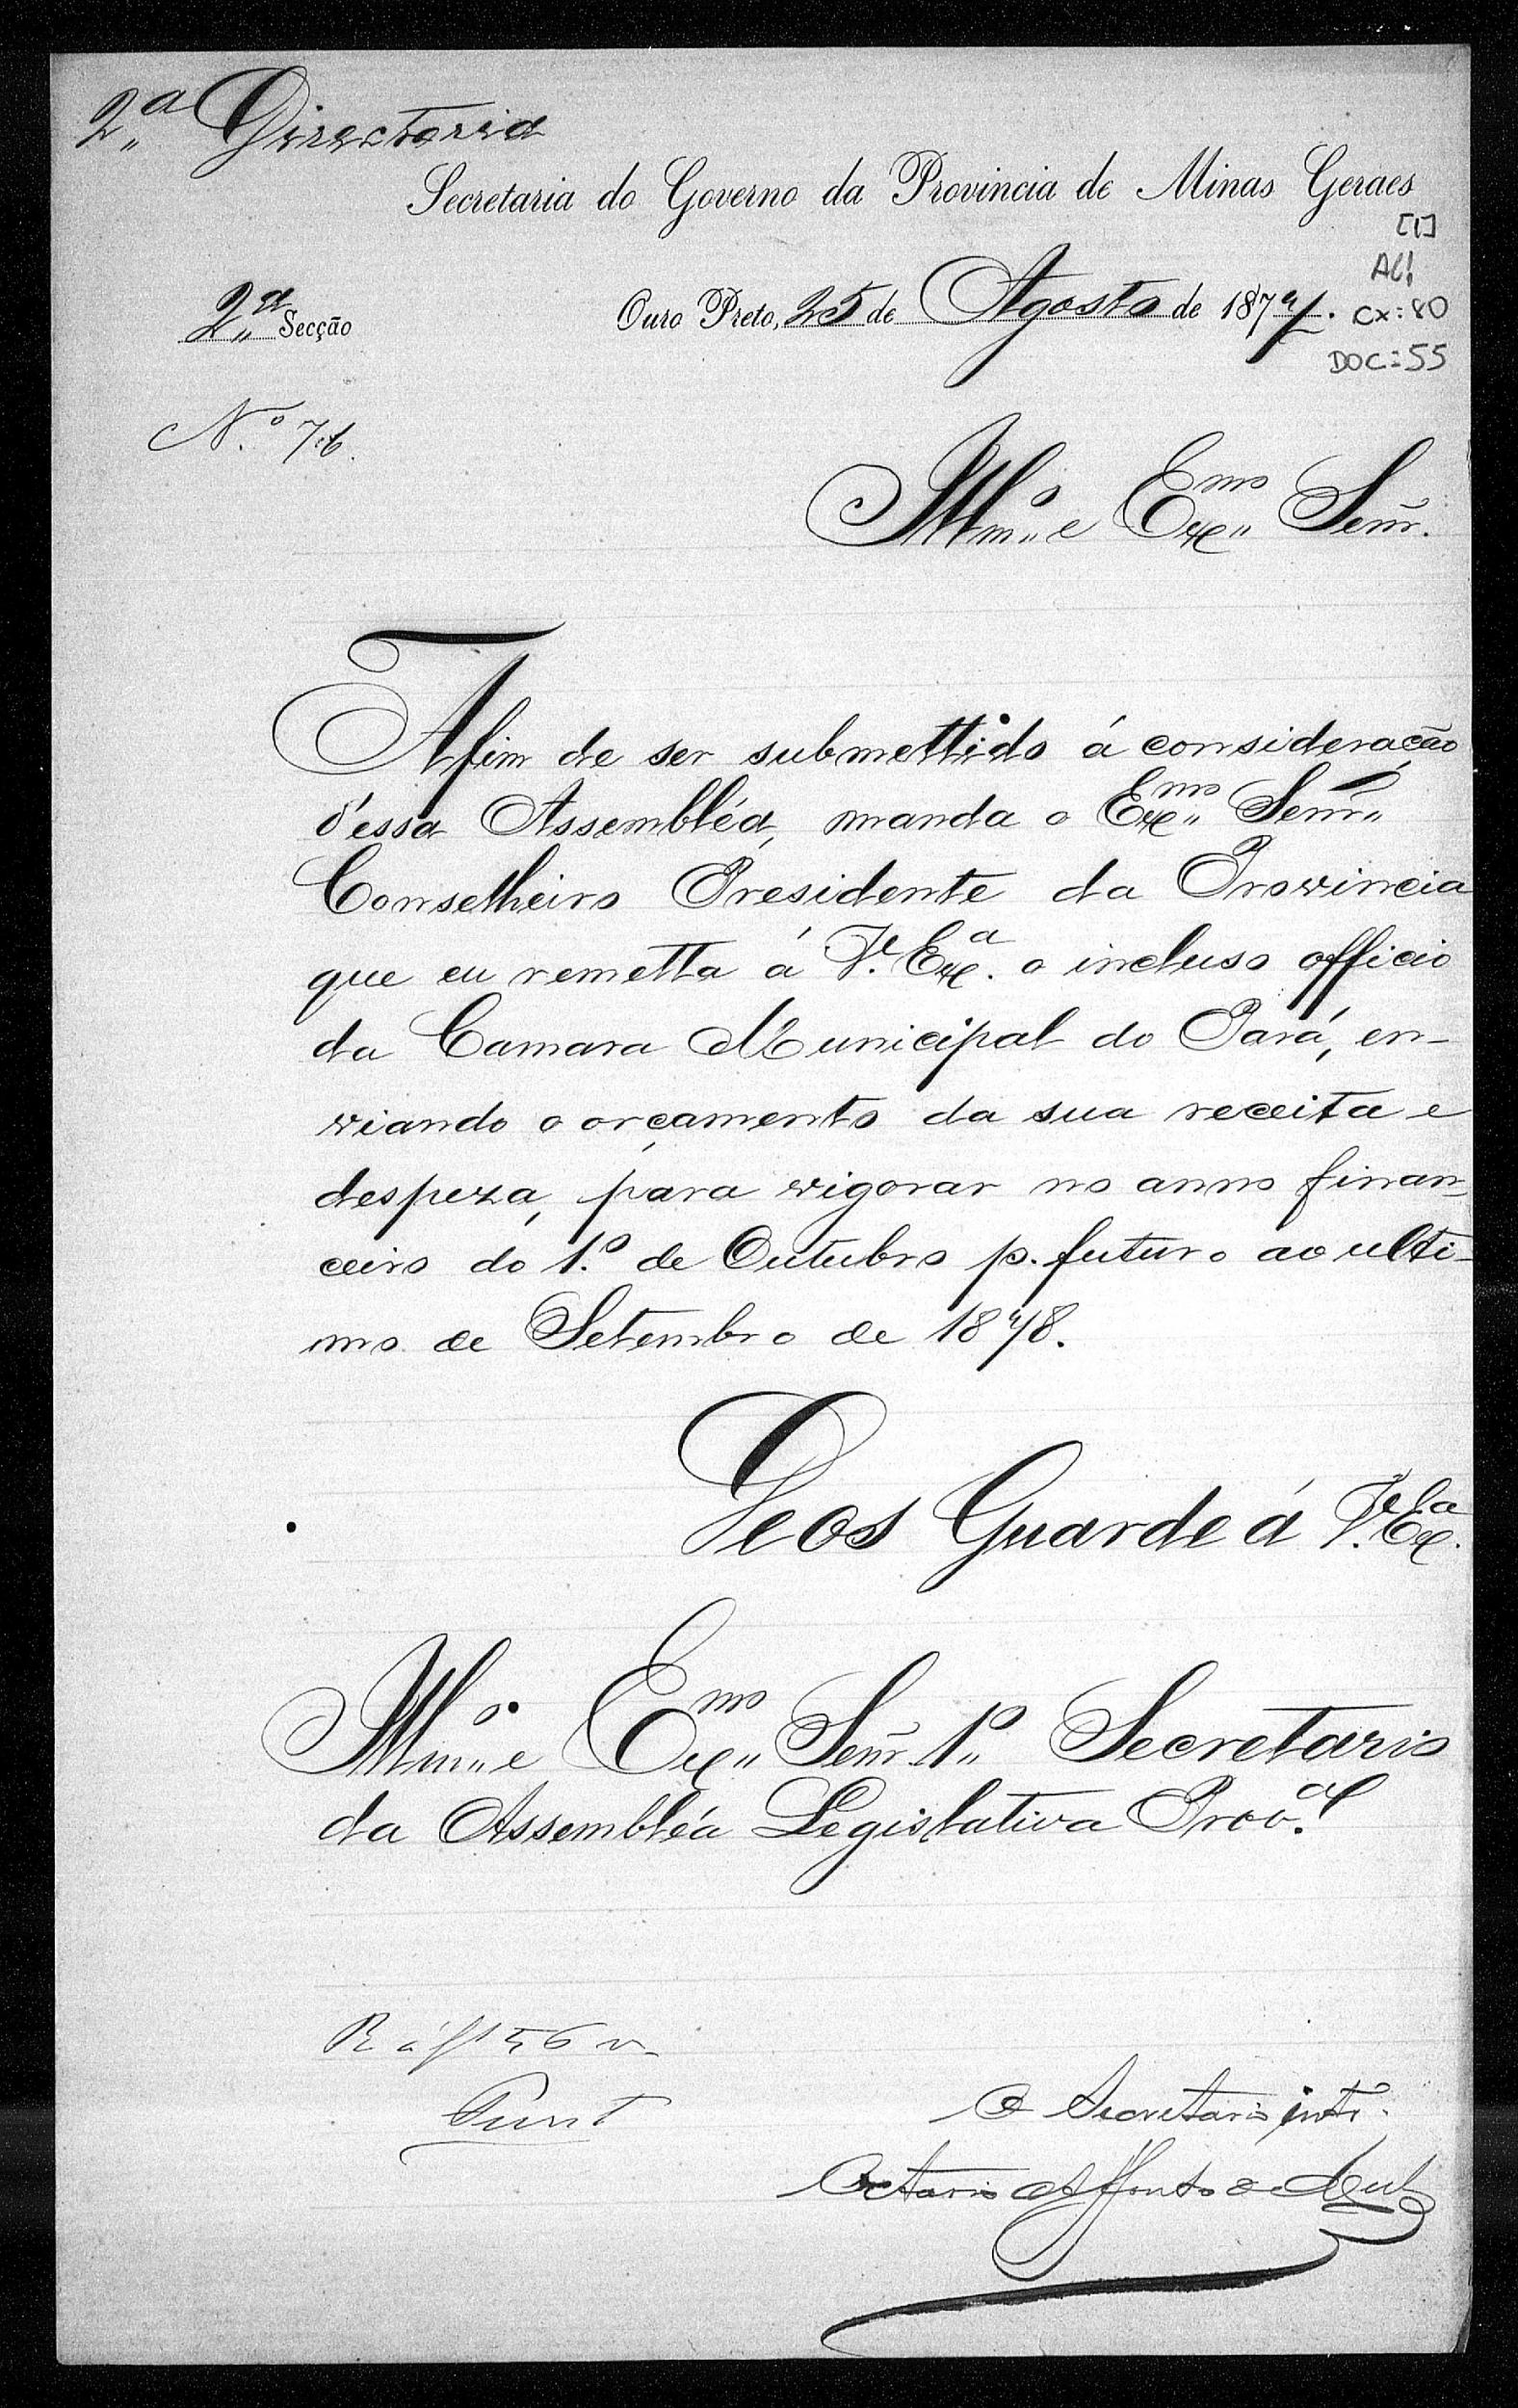 2.ª Directoria
Secretaria do Governo da Provincia de Minas Geraes
[1]
AL!
2.ª Secção
Ouro Preto, 25 de Agosto de 1877.
CX: 80
DOC: 55
N.º 76.
Illm.º e Exmº Senr.
Afim de ser submettido á consideração
d'essa Assembléa, manda o Exmº Senr.
Conselheiro Presidente da Provincia
que eu remetta á V. Exª. o incluso officio
da Camara Municipal do Pará, en-
viando o orçamento da sua receita e
despeza, para vigorar no anno finan-
ceiro do 1.º de Outubro p. futuro ao ulti-
mo de Setembro de 1878.
Deos Guarde á V. Exª.
Illm.º e Exmº Senr. 1.º Secretario
da Assembléa Legislativa Prov.al
R á fl 56 v
O Secretario intr.
Octavio Affonso de